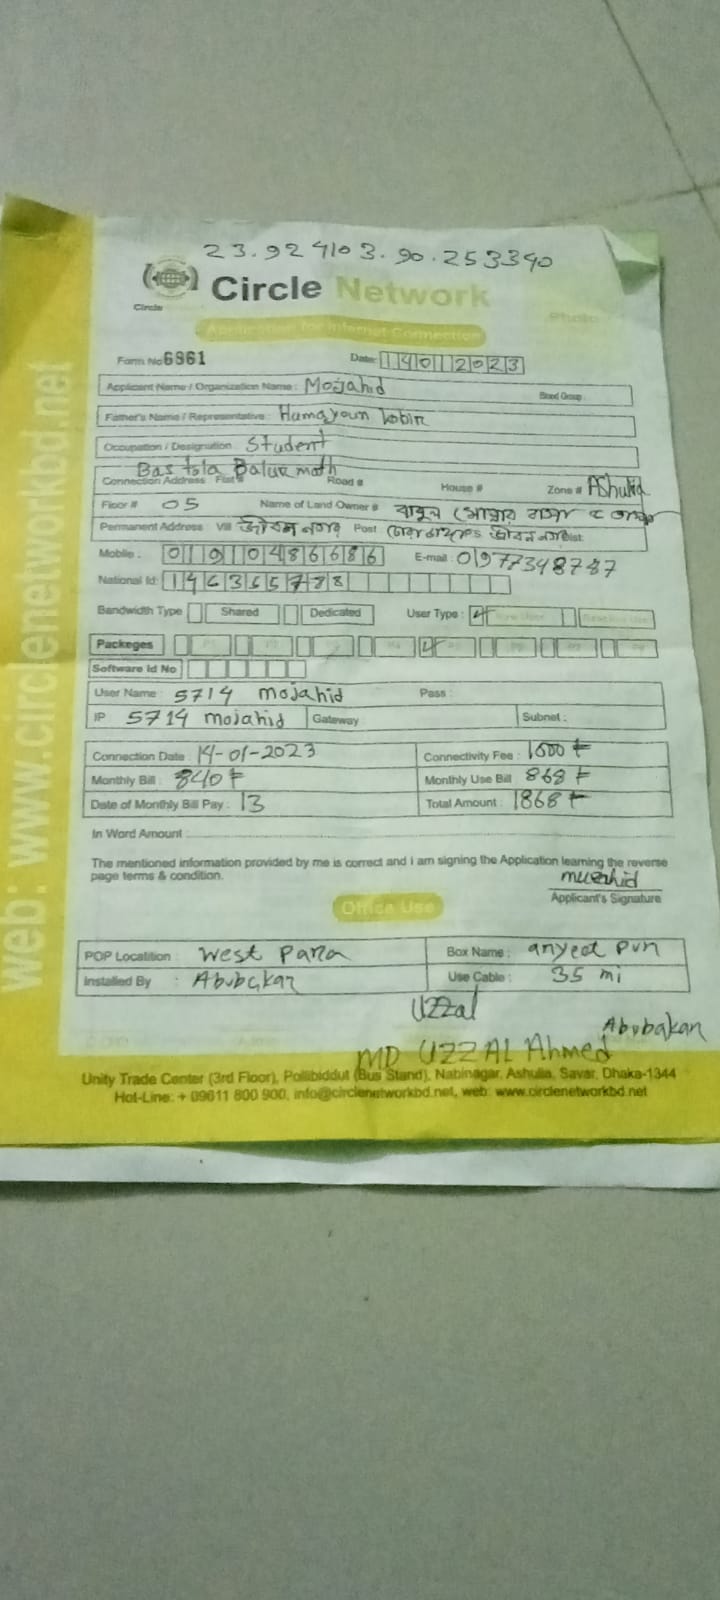 23.924103.90.253340
Circle
Circle Network
Application for Internet Connection
Photo
Form No 6961 Date: 14012023
Applicant Name / Organization Name : Mojahid Blood Group :
Father's Name / Representative : Humayoun kobir
Occupation / Designation : Student
Bas tola Balur math
Connection Address Flat # Road # House # Zone # AShulia
Floor # 05 Name of Land Owner # বাবুল
Permanent Address Vill জীবন নগর Post জীবন নগর Dist:
Mobile : 01910486686 E-mail : 01977348787
National Id: 1463657
Bandwidth Type Shared Dedicated User Type :
Packeges
Software Id No
User Name : 5714 mojahid Pass :
IP 5714 mojahid Gateway Subnet :
Connection Date : 14-01-2023 Connectivity Fee : 1000 ৳
Monthly Bill : 840 ৳ Monthly Use Bill 868 ৳
Date of Monthly Bill Pay : 13 Total Amount : 1868 ৳
In Word Amount
The mentioned information provided by me is correct and i am signing the Application learning the reverse
page terms & condition.
Applicant's Signature
Office Use
POP Localition : West Para Box Name :
Installed By : Abubakar Use Cable : 35 mi
Uzzal
Abubakar
MD UZZAL Ahmed
Unity Trade Center (3rd Floor), Pollibiddut (Bus Stand), Nabinagar, Ashulia, Savar, Dhaka-1344
Hot-Line: + 09611 800 900, info@circlenetworkbd.net, web: www.circlenetworkbd.net
web: www.circlenetworkbd.net